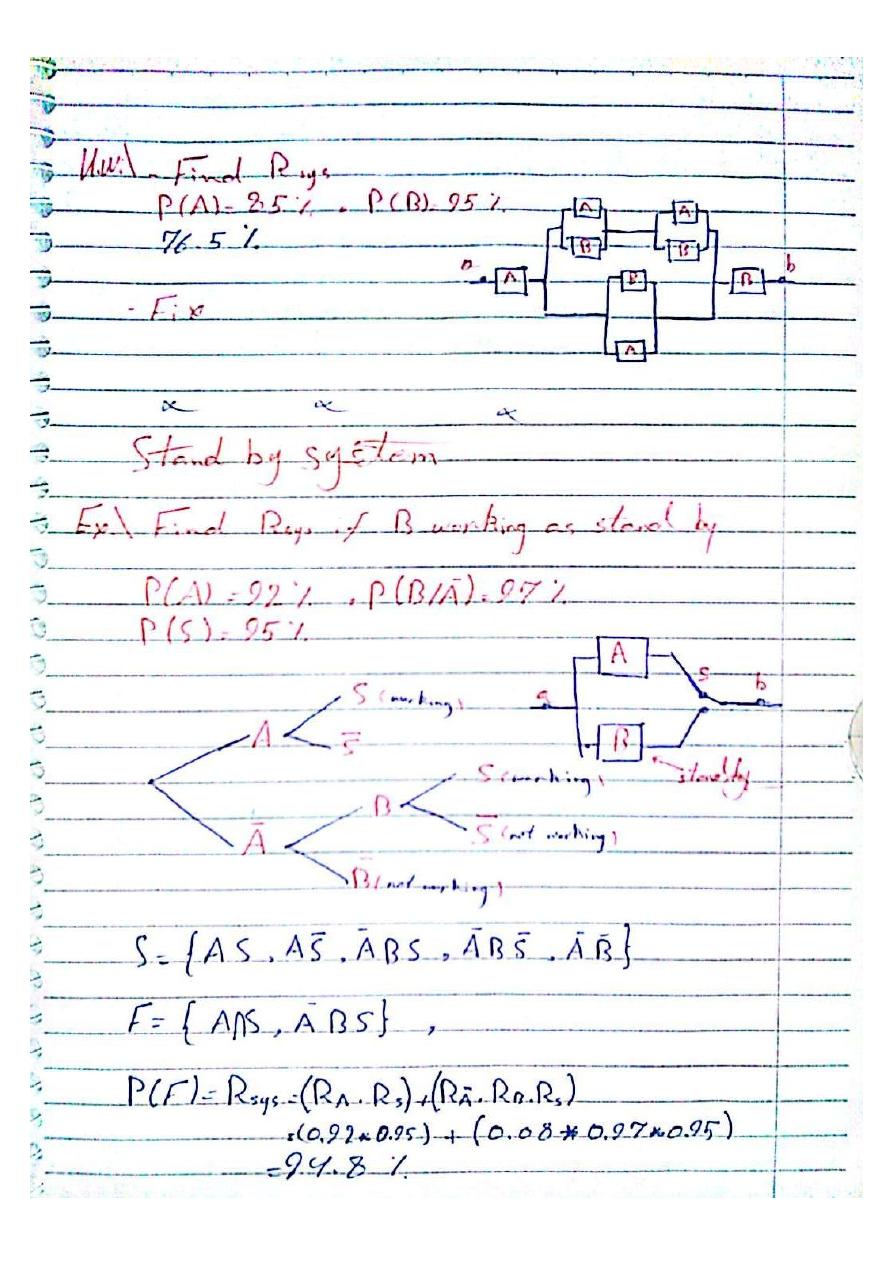 H.W.\ - Find Rsys
P(A)= 85 % , P(B)= 95 %
76.5 %
A A
B B
a A B B b
- Fix
A
Stand by system
Ex.\ Find Rsys if B working as stand by
P(A) = 92 % , P(B/Ā) = 97 %
P(S) = 95 %
A
S (working) a S b
A S̄
B
S (working) stand by
B
S̄ (not working)
Ā
B̄ (not working)
S = { AS , AS̄ , ĀBS , ĀBS̄ , ĀB̄ }
F = { A∩S , ĀBS } ,
P(F) = Rsys = (RA . Rs) + (RĀ . RB . Rs)
= (0.92 * 0.95) + (0.08 * 0.97 * 0.95)
= 94.8 %